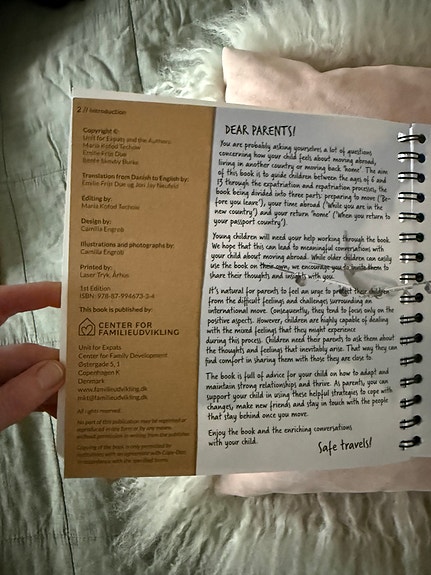 2 // Introduction
Copyright ©
Unit for Expats and the Authors:
Maria Kofod Techow
Emilie Friis Due
Translation from Danish to English by:
Emilie Friis Due og Jon Jay Neufeld
Editing by:
Maria Kofod Techow
Design by:
Camilla Engrob
Illustrations and photographs by:
Camilla Engrob
Printed by:
Laser Tryk, Århus
1st Edition
ISBN: 978-87-994673-3-4
This book is published by:
CENTER FOR
FAMILIEUDVIKLING
Unit for Expats
Center for Family Development
Østergade 5, 1
Copenhagen K
Denmark
www.familieudvikling.dk
mkt@familieudvikling.dk
All rights reserved.
No part of this publication may be reprinted or
reproduced in any form by any means
without permission in writing from the publisher.
Copying of the book is only permitted by
institutions with an agreement with Copy-Dan
in accordance with the specified terms.
DEAR PARENTS!
You are probably asking yourselves a lot of questions
concerning how your child feels about moving abroad,
living in another country or moving back 'home'. The aim
of this book is to guide children between the ages of 6 and
13 through the expatriation and repatriation processes, the
book being divided into three parts: preparing to move ('Be-
fore you leave'), your time abroad ('While you are in the
new country') and your return 'home' ('When you return to
your passport country').
Young children will need your help working through the book.
We hope that this can lead to meaningful conversations with
your child about moving abroad. While older children can easily
use the book on their own, we encourage you to invite them to
share their thoughts and insights with you.
It's natural for parents to feel an urge to protect their children
from the difficult feelings and challenges surrounding an
international move. Consequently, they tend to focus only on the
positive aspects. However, children are highly capable of dealing
with the mixed feelings that they might experience
during this process. Children need their parents to ask them about
the thoughts and feelings that inevitably arise. That way they can
find comfort in sharing them with those they are close to.
The book is full of advice for your child on how to adapt and
maintain strong relationships and thrive. As parents, you can
support your child in using these helpful strategies to cope with
changes, make new friends and stay in touch with the people
that stay behind once you move.
Enjoy the book and the enriching conversations
with your child.
Safe travels!